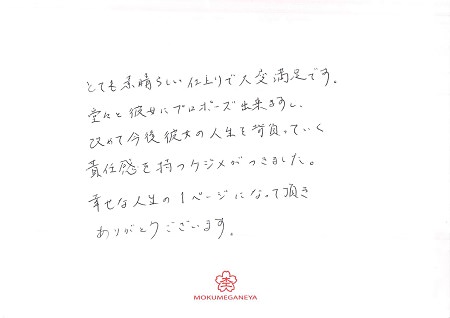 とても素晴らしい仕上りで大変満足です。
堂々と彼女にプロポーズ出来ますし、
改めて今後彼女の人生を背負っていく
責任感を持つケジメがつきました。
幸せな人生の1ページになって頂き
ありがとうございます。
杢
MOKUMEGANEYA